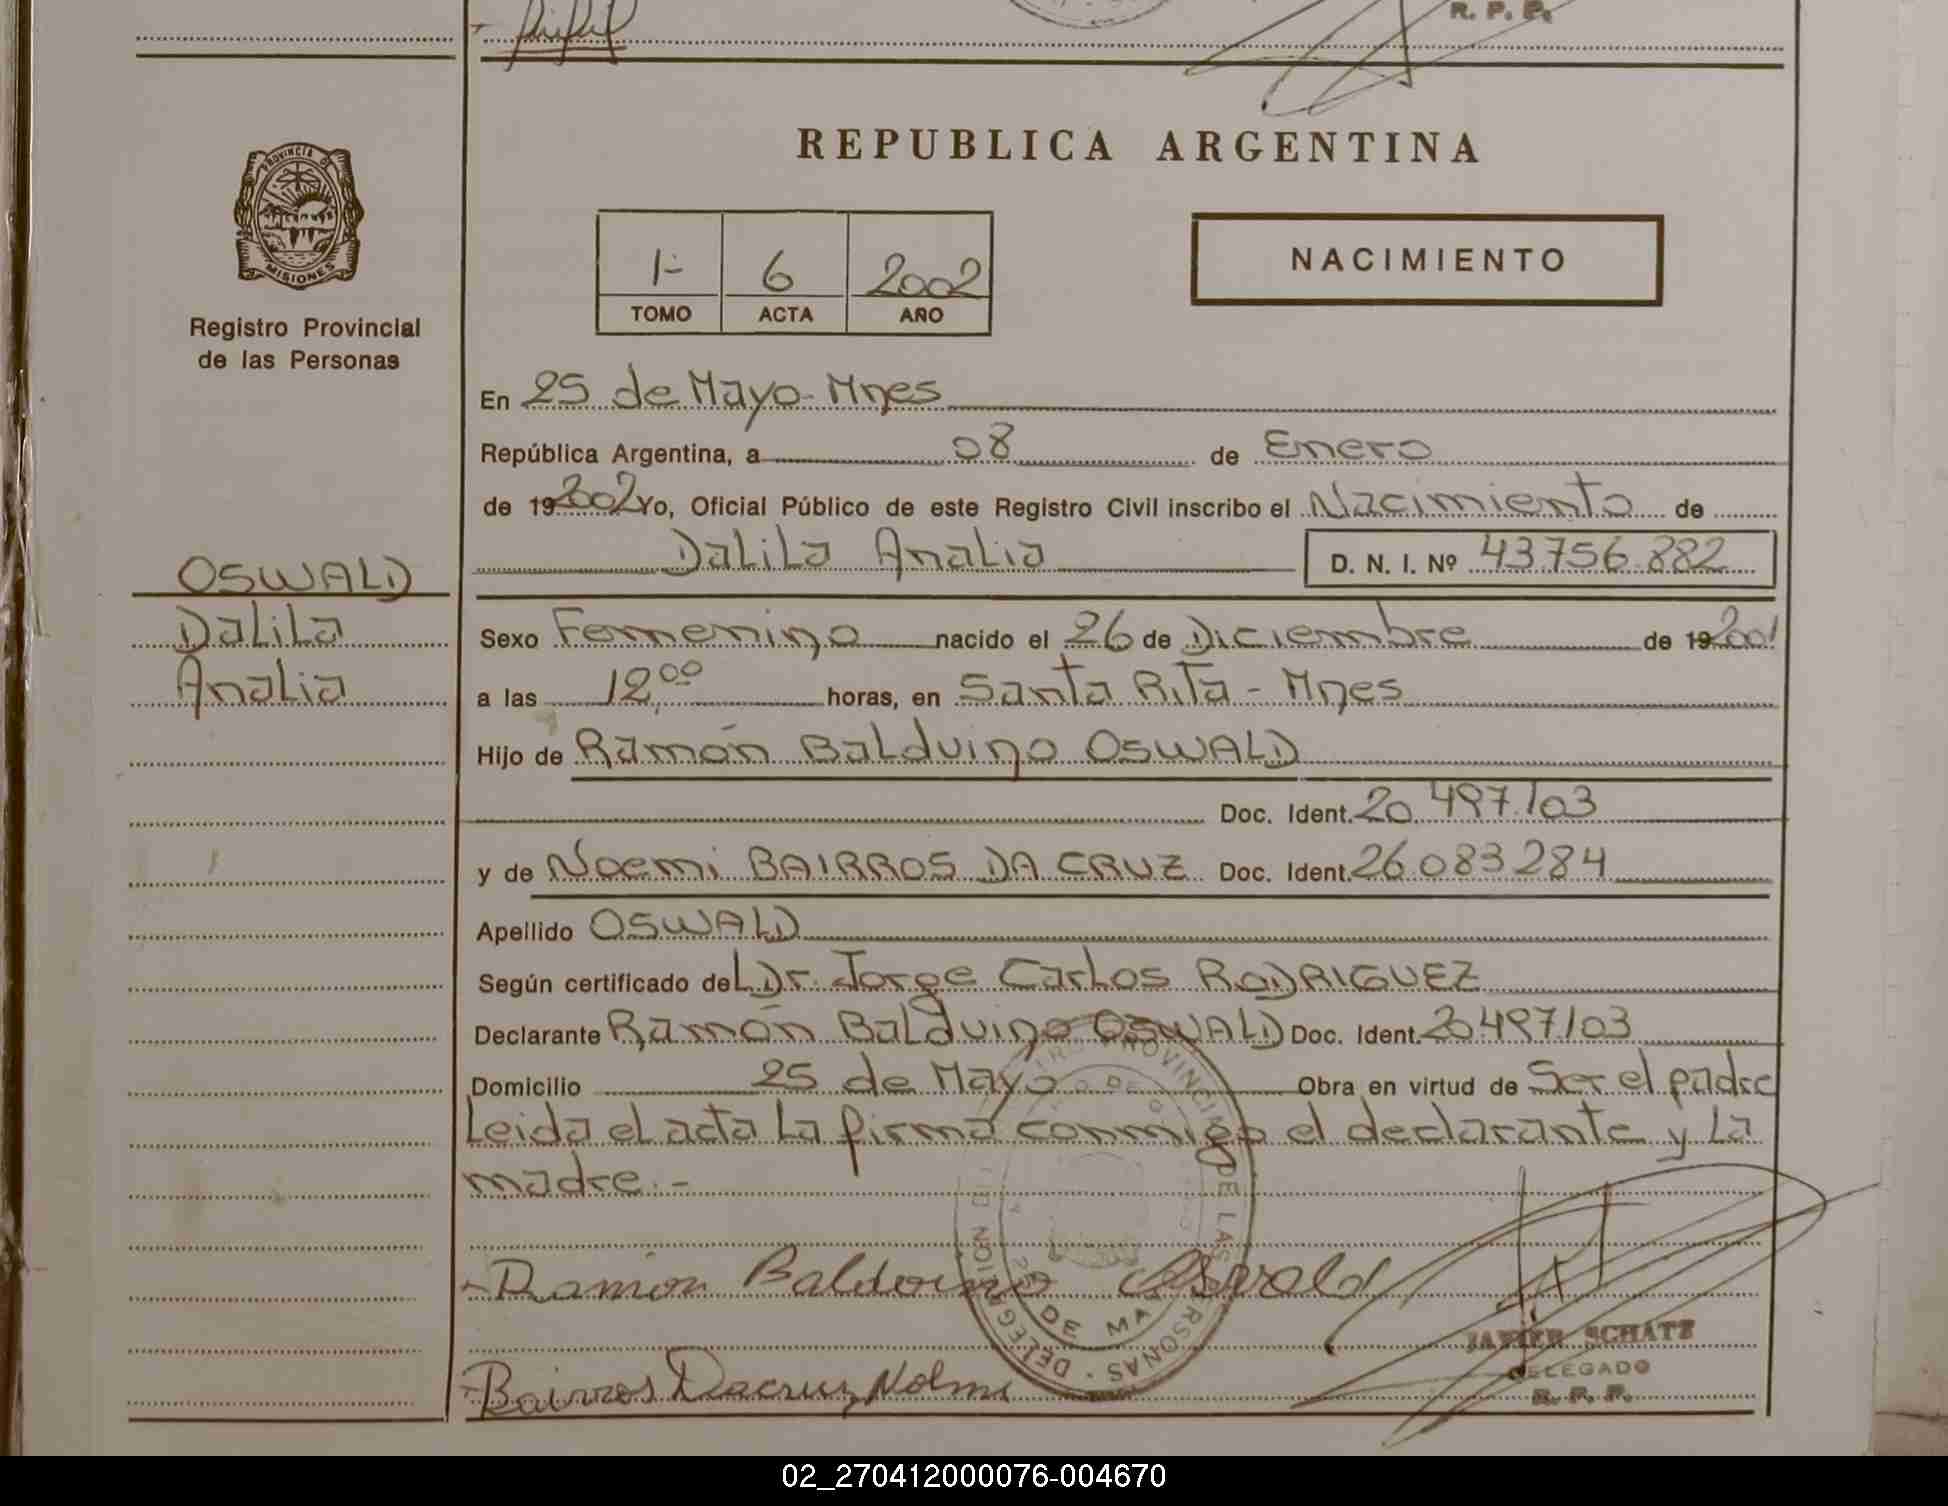 R. P. P.
REPUBLICA ARGENTINA
PROVINCIA DE
MISIONES
Registro Provincial
de las Personas
1- 6 2002
TOMO ACTA AÑO
NACIMIENTO
En 25 de Mayo-Mnes
República Argentina, a 08 de Enero
de 192002 Yo, Oficial Público de este Registro Civil inscribo el Nacimiento de
Dalila Analia D. N. I. Nº 43.756.882
OSWALD
Dalila
Analia
Sexo Femenino nacido el 26 de Diciembre de 192001
a las 12,00 horas, en Santa Rita - Mnes
Hijo de Ramón Balduino OSWALD
Doc. Ident. 20.497.103
y de Noemi BAIRROS DA CRUZ Doc. Ident. 26.083.284
Apellido OSWALD
Según certificado del Dr. Jorge Carlos RODRIGUEZ
Declarante Ramón Balduino OSWALD Doc. Ident. 20497103
Domicilio 25 de Mayo Obra en virtud de Ser el padre
Leida el acta la firma conmigo el declarante y la
madre.-
Ramón Baldoino Oswald
Bairros Dacruz Nolmi
JAVIER SCHATZ
DELEGADO
R. P. P.
02_270412000076-004670